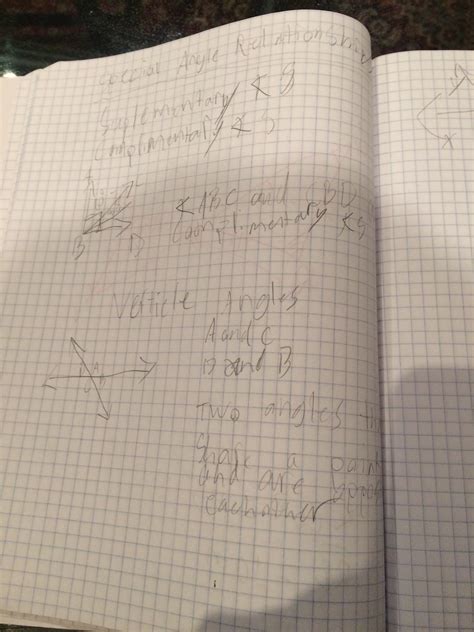 Special Angle Relationships
Suplementary ∠S
Complimentary ∠S
B D
∠ABC and CBD
Complimentary ∠S
Verticle Angles
A and C
D and B
Two angles
Share a point
and are
eachother
X